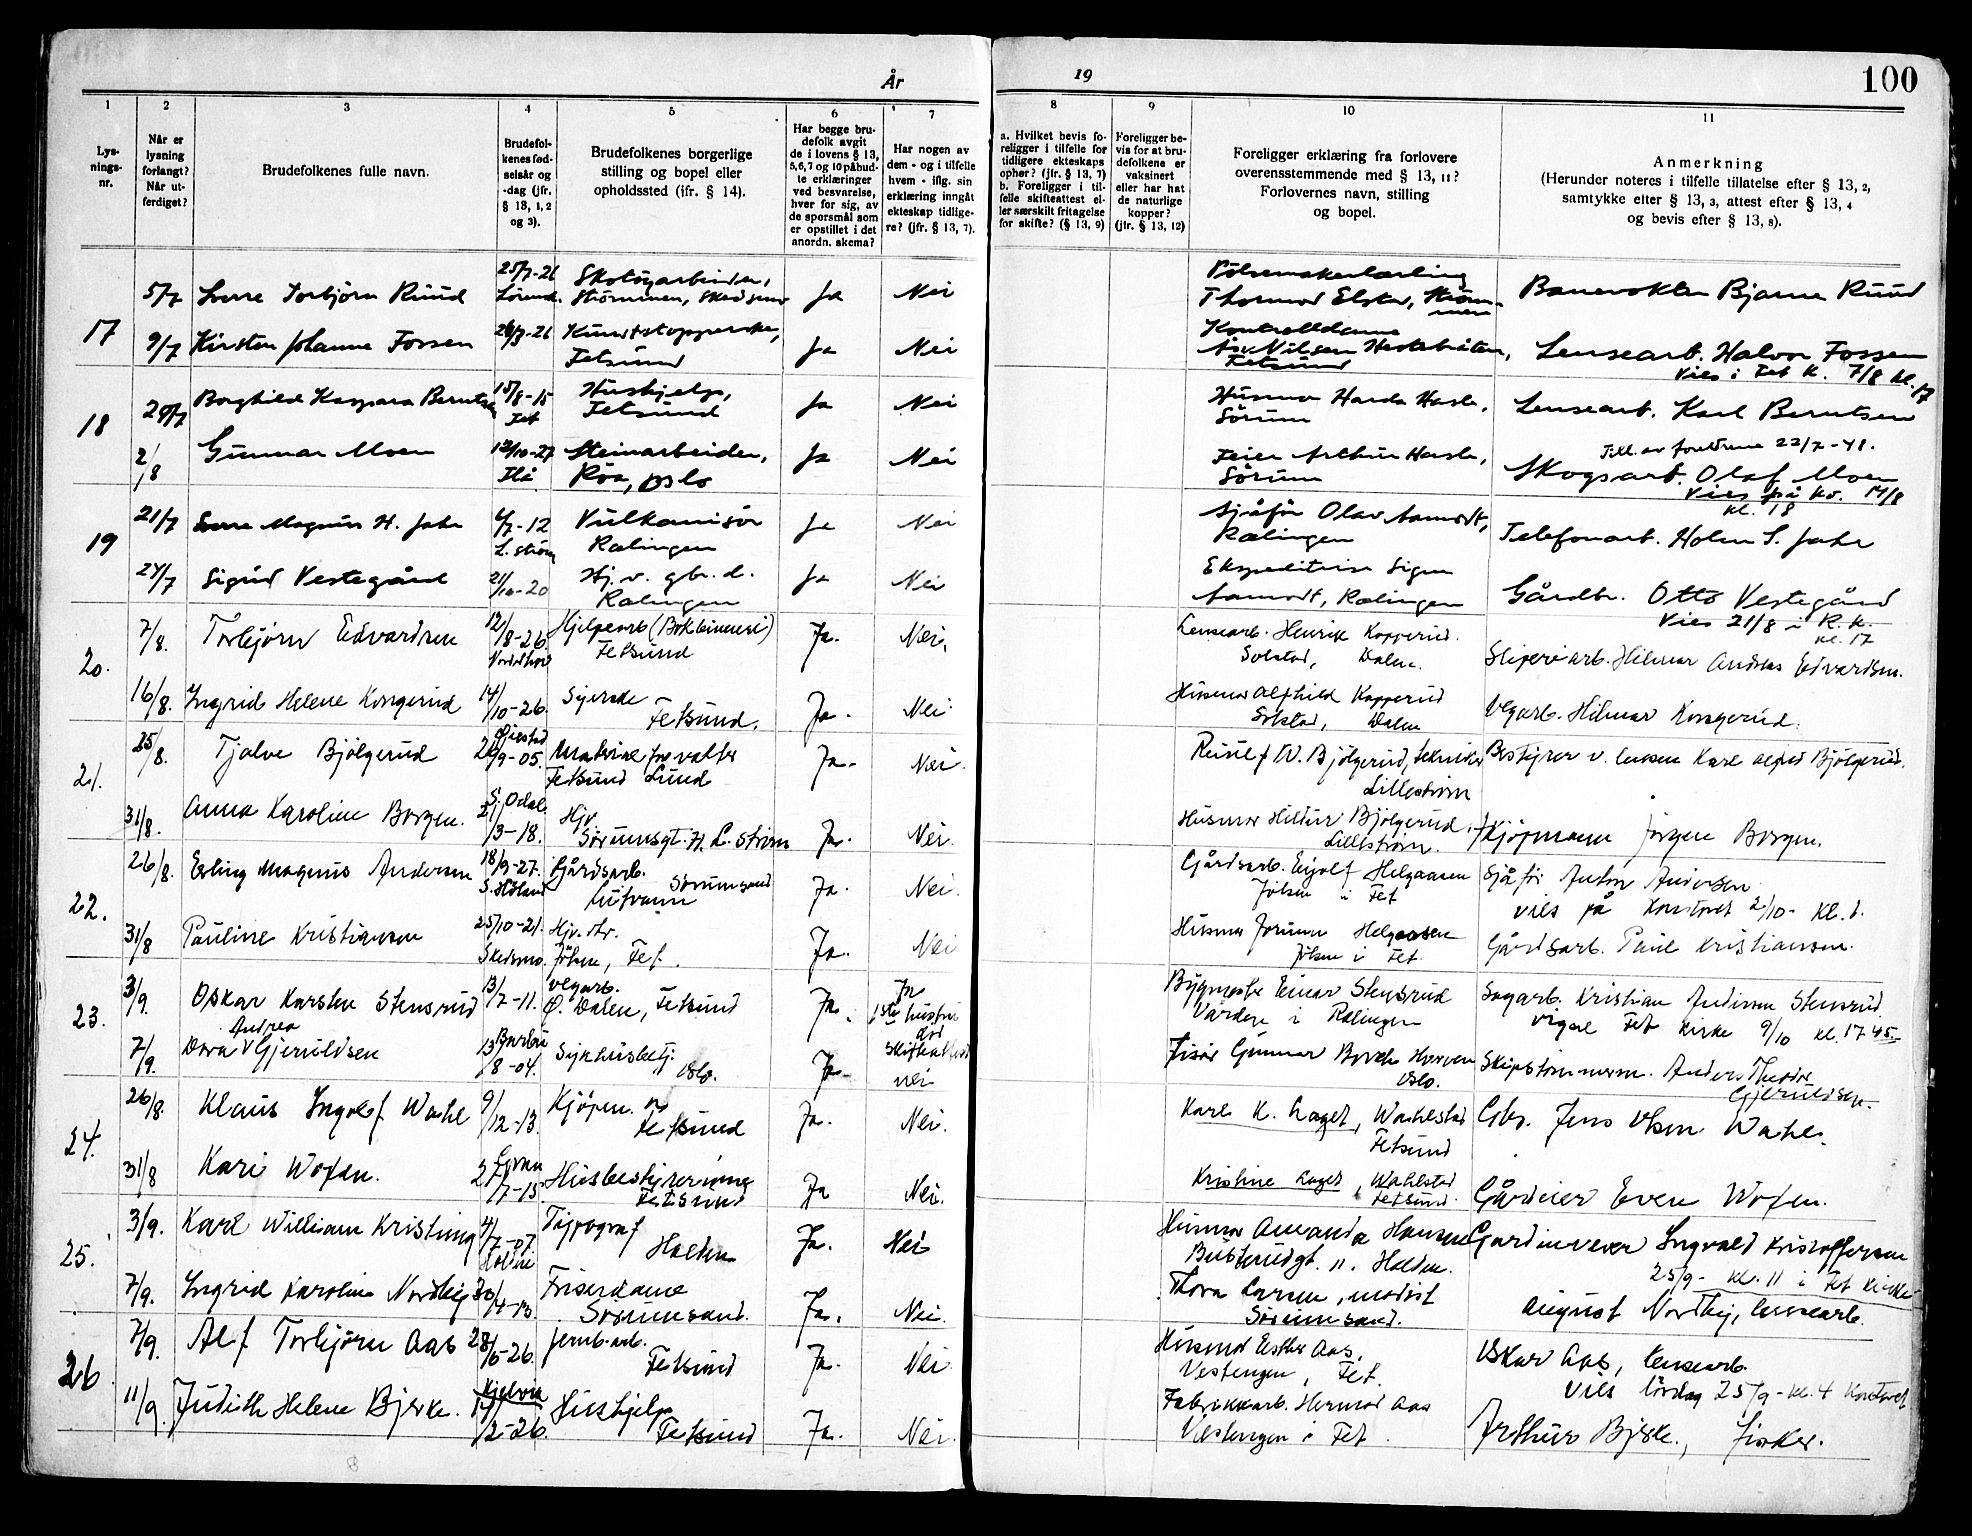 År
19
100
1
2
3
4
5
6
7
8
9
10
11
Lys-
nings-
nr.
Når er
lysning
forlangt?
Når ut-
ferdiget?
Brudefolkenes fulle navn.
Brudefol-
kenes fød-
selsår og
-dag (jfr.
§ 18, 1, 2
og 3).
Brudefolkenes borgerlige
stilling og bopel eller
opholdssted (ifr. § 14).
Har begge bru-
defolk avgit
de i lovens § 13,
5, 6, 7 og 10 påbud-
te erklæringer
ved besvarelse,
hver for sig, av
de spørsmål som
er opstillet i det
anordn. skema?
Har nogen av
dem - og i tilfelle
hvem - iflg. sin
erklæring inngåt
ekteskap tidlige-
re? (jfr. § 13, 7).
a. Hvilket bevis fo-
religger i tilfelle for
tidligere ekteskaps
ophør? (jfr. § 13, 7)
b. Foreligger i til-
felle skifteattest el-
ler særskilt fritagelse
for skifte? (§ 13, 9)
Foreligger be-
vis for at bru-
defolkene er
vaksinert
eller har hat
de naturlige
kopper?
(jfr. § 13, 12)
Foreligger erklæring fra forlovere
overensstemmende med § 13, 11?
Forlovernes navn, stilling
og bopel.
Anmerkning
(Herunder noteres i tilfelle tillatelse efter § 13, 2,
samtykke efter § 13, 3, attest efter § 13, 4
og bevis efter § 13, 8).
17
5/7 Sverre Torbjörn Ruud 25/7-26 Skotöyarbeider, Strömmen, Skedsmo Ja Nei Thormod Elster, Ström-
men Banevokter Bjarne Ruud
9/7 Kirsten Johanne Fossen 26/3-26 Kunststopperske, Fetsund Ja Nei Kontrolldame
Nilsen Heksebråten, Fetsund Lensearb. Halvor Fossen
Vies i Fet K. 7/8 kl. 17
18
29/7 Borghild Kaspara Berntsen 15/8-15 Fet Hushjelp, Fetsund Ja Nei Husmor Harda Hasle, Sörum Lensearb. Karl Berntsen
2/8 Gunnar Moen 12/10-27 Steinarbeider, Röa, Oslo Ja Nei Feier Arthur Hasle, Sörum Till. av foreldrene 22/7-48.
Skogsarb. Olaf Moen
Vies på ko. 14/8
kl. 18
19
21/7 Sverre Magnus H. Jahr 4/7-12 L. ström Vulkanisör Rælingen Ja Nei Sjåför Olav Aamodt, Rælingen Telefonarb. Holm S. Jahr
24/7 Sigrid Vestegård 21/10-20 Hj. v. gbr. d. Rælingen Ja Nei Ekspeditrise Signe
Aamodt, Rælingen Gårdbr. Otto Vestegård
Vies 21/8 i R. K.
kl. 17
20.
7/8. Torbjørn Edvardsen 12/8-26. Hjelpearb (Bokbinneri) Fetsund Ja. Nei. Lensearb. Henrik Kopperud.
Solstad, Dalen. Sliperiarb. Hilmar Andreas Edvardsen.
16/8. Ingrid Helene Kongerud 14/10-26. Syerske Fetsund. Ja. Nei. Husmor Alfhild Kopperud
Solstad, Dalen Vegarb. Hilmar Kongerud.
21.
25/8. Tjalve Bjölgerud 9-05. Materialforvalter
Fetsund Lund Ja. Nei. W. Bjölgerud, tekniker
Lilleström Bestyrer v. lensen Karl Alfred Bjölgerud.
31/8. Anna Karoline Borgen. S. Odal 3-18. Hjv.
Sørumsgt. L. strøm Ja. Nei. Husmor Bjölgerud,
Lilleström. Kjøpmann Jörgen Borgen.
22.
26/8. Erling Magnus Andersen 18/9-27. S. Höland Gårdsarb.
Sørumsand Ja. Nei. Gårdsarb. Eyolf Helgaasen
Jölsen i Fet Sjåför Anton Andersen
vies på Kontoret 2/10- kl. 1.
31/8 Pauline Kristiansen 25/10-21. Skedsmo. Hjv. dtr.
Jölsen, Fet. Ja. Nei Husmor Jorunn Helgaasen
Jölsen i Fet. Gårdsarb. Paul Kristiansen.
23.
3/9. Oskar Karsten Stensrud 13/7-11. Vegarb.
Ø. Dalen, Fetsund Ja. Ja
1ste hustru
død
Skifteattest Bygmester Einar Stensrud
Vårdene i Rælingen Sagarb. Kristian Andersen Stensrud.
vigsel Fet kirke 9/10 kl. 17 45.
7/9. Dora Andrea Gjeruldsen 13/8-04. Barbu Sykehusbetj.
Oslo. Ja. nei Frisör Gunnar Oslo. Skipstømmerm. Anders Theodor
Gjeruldsen.
24.
26/8. Klaus Ingolf Wahl 9/12-13. Kjøpm.
Fetsund Ja. Nei. Karl K. Laget, Wahlstad
Fetsund Gbr. Jens Olsen Wahl.
31/8 Kari Wofen. 27/7-15 Husbestyrerinne
Fetsund Ja Nei. Kristine Laget, Wahlstad
Fetsund. Gårdeier Even Wofen.
25.
3/9. Karl William Kristing 4/7-07 Typograf
Halden Ja. Nei Husmor Amanda Hansen
Busterudgt. 11. Halden. Gardinvever Ingvald Kristoffersen
25/9- kl. 11 i Fet kirke
7/9. Ingrid Karoline Nordhig 30/4-13. Friserdame
Sørumsand. Ja. Nei. Thora Larsen, modist
Sørumsand. August Nordhig, lensearb.
26
7/9. Alf Torbjørn Aas 28/5-26. Jernb.arb.
Fetsund Ja. Nei Husmor Esther Aas,
Vestengen, Fet. Oskar Aas, lensearb.
Vies lördag 25/9-kl. 4 Kontoret
11/9. Judith Helene Bjerke. 2-26. Hushjelp
Fetsund Ja. Nei. Fabrikkarb. Hermod Aas
Vestengen i Fet. Arthur Bjerke, fisker.